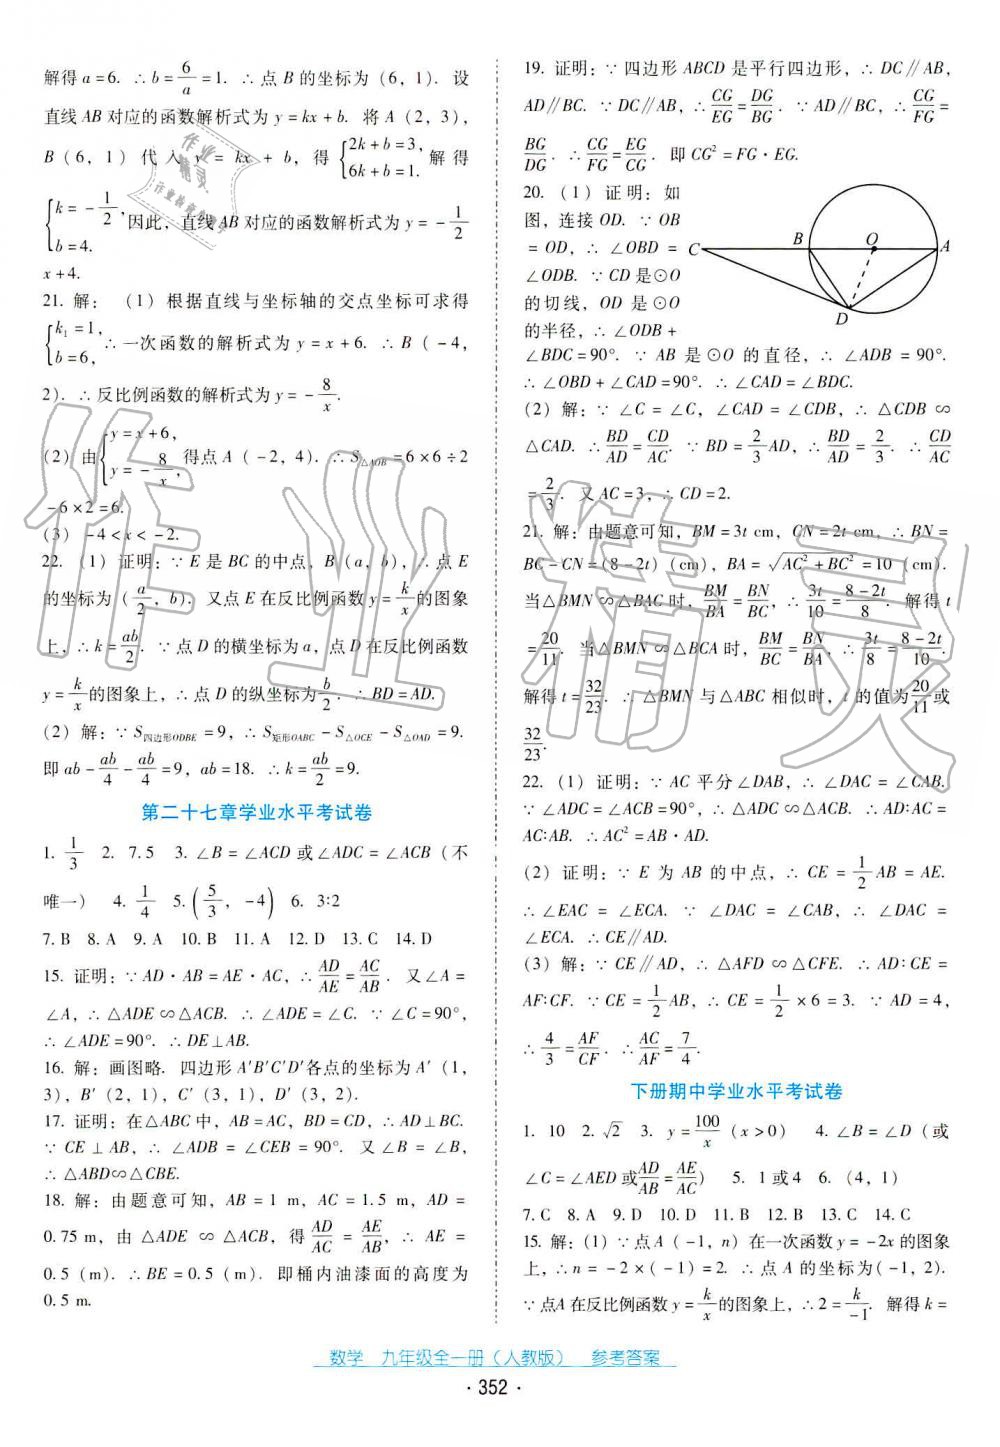 解得 a=6. ∴ b=6/a=1. ∴ 点 B 的坐标为（6，1）. 设
直线 AB 对应的函数解析式为 y=kx+b. 将 A（2，3），
B（6，1）代入 y=kx+b，得{2k+b=3, 6k+b=1. 解得
{k=-1/2, b=4. 因此，直线 AB 对应的函数解析式为 y=-1/2
x+4.
21. 解：（1）根据直线与坐标轴的交点坐标可求得
{k₁=1, b=6, ∴ 一次函数的解析式为 y=x+6. ∴ B（-4，
2）. ∴ 反比例函数的解析式为 y=-8/x.
（2）由{y=x+6, y=-8/x, 得点 A（-2，4）. ∴ S△AOB=6×6÷2
-6×2=6.
（3）-4<x<-2.
22.（1）证明：∵ E 是 BC 的中点，B（a，b），∴ 点 E
的坐标为（a/2，b）. 又点 E 在反比例函数 y=k/x 的图象
上，∴ k=ab/2. ∵ 点 D 的横坐标为 a，点 D 在反比例函数
y=k/x 的图象上，∴ 点 D 的纵坐标为 b/2. ∴ BD=AD.
（2）解：∵ S四边形ODBE=9，∴ S矩形OABC-S△OCE-S△OAD=9.
即 ab-ab/4-ab/4=9，ab=18. ∴ k=ab/2=9.
第二十七章学业水平考试卷
1. 1/3 2. 7.5 3. ∠B=∠ACD 或∠ADC=∠ACB（不
唯一） 4. 1/4 5.（5/3，-4） 6. 3∶2
7. B 8. A 9. A 10. B 11. A 12. D 13. C 14. D
15. 证明：∵ AD·AB=AE·AC，∴ AD/AE=AC/AB. 又∠A=
∠A，∴ △ADE∽△ACB. ∴ ∠ADE=∠C. ∵ ∠C=90°，
∴ ∠ADE=90°. ∴ DE⊥AB.
16. 解：画图略. 四边形 A′B′C′D′各点的坐标为 A′（1，
3），B′（2，1），C′（3，1），D′（3，2）.
17. 证明：在△ABC 中，AB=AC，BD=CD，∴ AD⊥BC.
∵ CE⊥AB，∴ ∠ADB=∠CEB=90°. 又∠B=∠B，
∴ △ABD∽△CBE.
18. 解：由题意可知，AB=1 m，AC=1.5 m，AD=
0.75 m，由 △ADE∽△ACB，得 AD/AC=AE/AB，∴ AE=
0.5（m）. ∴ BE=0.5（m）. 即桶内油漆面的高度为
0.5 m.
19. 证明：∵ 四边形 ABCD 是平行四边形，∴ DC∥AB，
AD∥BC. ∵ DC∥AB，∴ CG/EG=DG/BG. ∵ AD∥BC，∴ CG/FG=
BG/DG. ∴ CG/FG=EG/CG. 即 CG²=FG·EG.
20.（1）证明：如
图，连接 OD. ∵ OB
=OD，∴ ∠OBD=
∠ODB. ∵ CD 是⊙O
的切线，OD 是⊙O
的半径，∴ ∠ODB+
C B O A D
∠BDC=90°. ∵ AB 是⊙O 的直径，∴ ∠ADB=90°.
∴ ∠OBD+∠CAD=90°. ∴ ∠CAD=∠BDC.
（2）解：∵ ∠C=∠C，∠CAD=∠CDB，∴ △CDB∽
△CAD. ∴ BD/AD=CD/AC. ∵ BD=2/3AD，∴ BD/AD=2/3. ∴ CD/AC
=2/3. 又 AC=3，∴ CD=2.
21. 解：由题意可知，BM=3t cm，CN=2t cm，∴ BN=
BC-CN=(8-2t)(cm)，BA=√(AC²+BC²)=10（cm）.
当△BMN∽△BAC 时，BM/BA=BN/BC，∴ 3t/10=(8-2t)/8. 解得 t
=20/11. 当△BMN∽△BCA 时，BM/BC=BN/BA，∴ 3t/8=(8-2t)/10.
解得 t=32/23. ∴ △BMN 与△ABC 相似时，t 的值为 20/11 或
32/23.
22.（1）证明：∵ AC 平分∠DAB，∴ ∠DAC=∠CAB.
∵ ∠ADC=∠ACB=90°，∴ △ADC∽△ACB. ∴ AD∶AC=
AC∶AB. ∴ AC²=AB·AD.
（2）证明：∵ E 为 AB 的中点，∴ CE=1/2AB=AE.
∴ ∠EAC=∠ECA. ∵ ∠DAC=∠CAB，∴ ∠DAC=
∠ECA. ∴ CE∥AD.
（3）解：∵ CE∥AD，∴ △AFD∽△CFE. ∴ AD∶CE=
AF∶CF. ∵ CE=1/2AB，∴ CE=1/2×6=3. ∵ AD=4，
∴ 4/3=AF/CF. ∴ AC/AF=7/4.
下册期中学业水平考试卷
1. 10 2. √2 3. y=100/x（x>0） 4. ∠B=∠D（或
∠C=∠AED 或 AD/AB=AE/AC） 5. 1 或 4 6.（4，1）
7. C 8. A 9. D 10. D 11. B 12. B 13. C 14. C
15. 解：（1）∵ 点 A（-1，n）在一次函数 y=-2x 的图象
上，∴ n=-2×（-1）=2. ∴ 点 A 的坐标为（-1，2）.
∵ 点 A 在反比例函数 y=k/x 的图象上，∴ 2=k/-1. 解得 k=
数学 九年级全一册（人教版） 参考答案
·352·
作业精灵